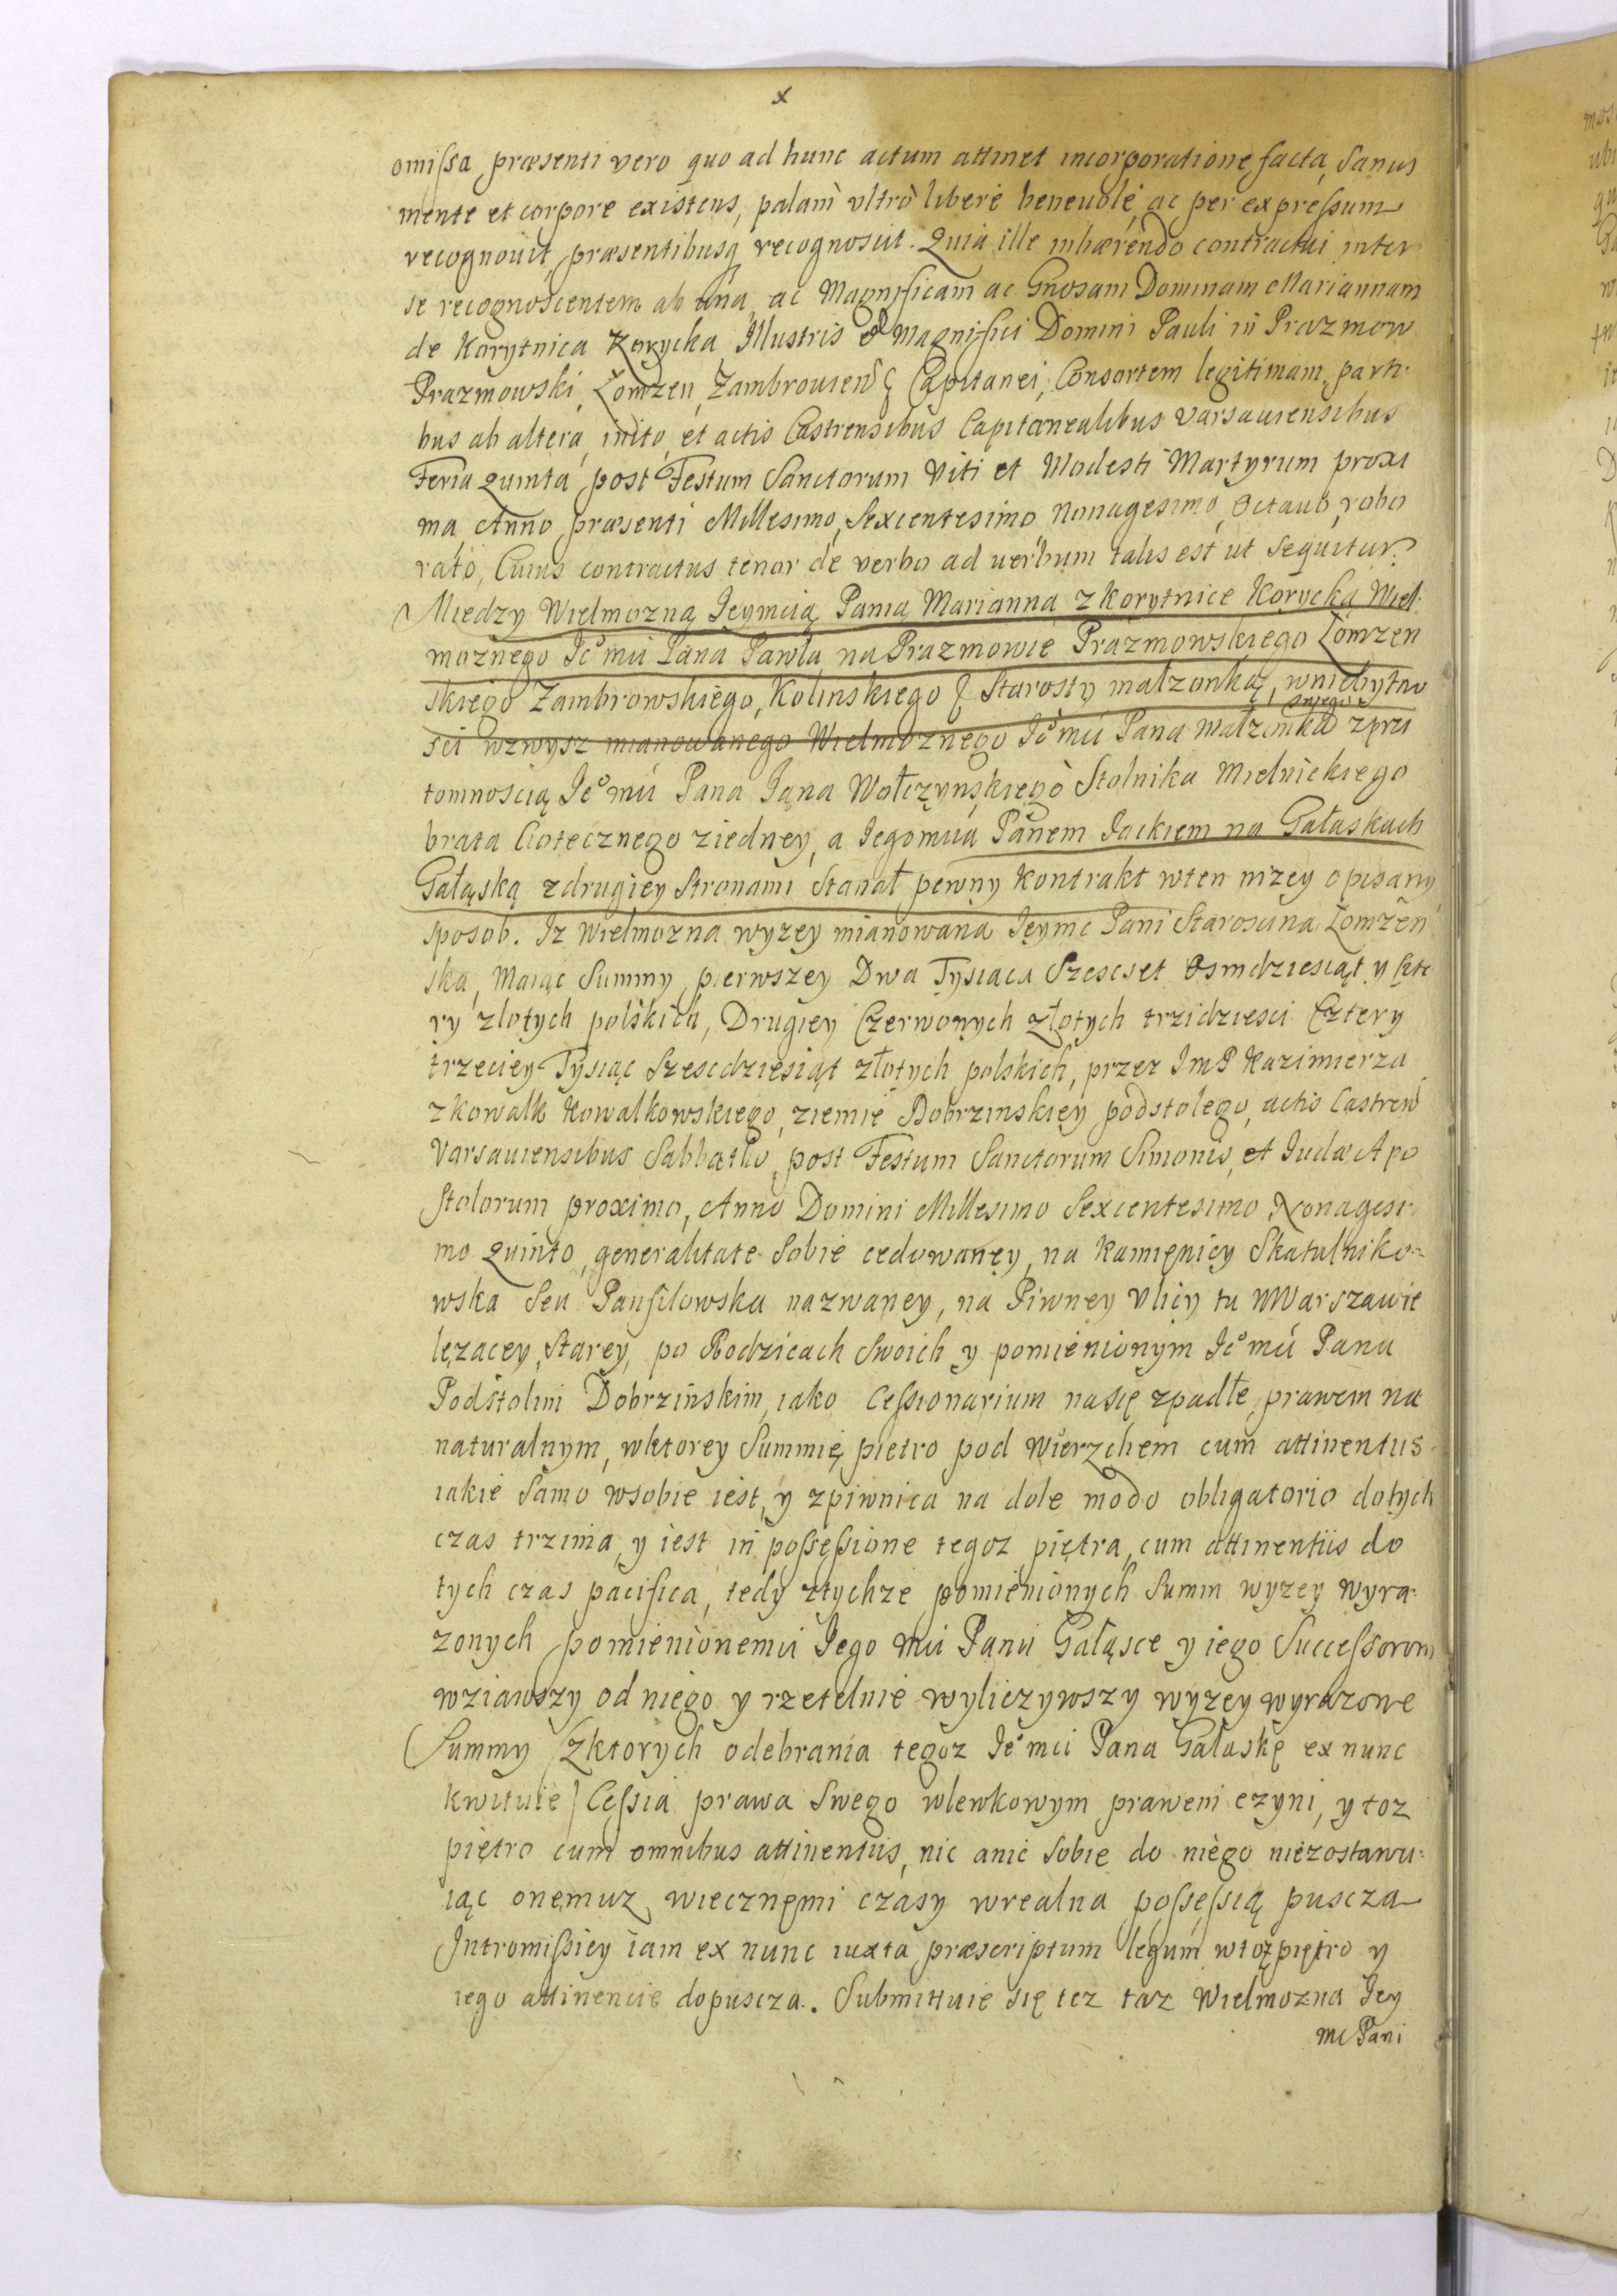 x
omissa, præsenti vero quo ad hunc actum attinet incorporatione facta, Sanus
mente et corpore existens, palam ultro libere beneuole, ac per expressum
recognouit, præsentibusq recognoscit. Quia ille inhærendo contractui inter
se recognoscentem ab una, ac Magnificam ac Gnosam Dominam Mariannam
de Korytnica Korycka, Illustris et Magnifici Domini Pauli in Prazmow
Prazmowski, Łomzen, Zambrouien Capitanei, Consortem legitimam, parti
bus ab altera, inito, et actis Castrensibus Capitanealibus Varsauiensibus
Feria quinta post Festum Sanctorum Viti et Modesti Martyrum proxi
ma, Anno præsenti Millesimo, Sexcentesimo Nonagesimo, Octauo, robo
rato, Cuius contractus tenor de verbo ad uerbum talis est ut sequitur.
Miedzy Wielmozną Jeymcią Panią Marianna z Korytnice Korycką Wiel
moznego Jeo mci Pana Pawła na Prazmowie Prazmowskiego Łomzen
skiego Zambrowskiego, Kolinskiego Starosty małzonką, w niebytno
sci wzwysz mianowanego Wielmoznego Jeo mci Pana Małzonka swjego z przi
tomnoscią Jeo mci Pana Jana Wołczynskiego Stolnika Mielnickiego
brata Ciotecznego z iedney, a Jegomcią Panem Jackiem na Gałaskach
Gałąską z drugiey Stronami Stanął pewny Kontrakt w ten nizey opisany
sposob. Iz Wielmozna wyzey mianowana Jeymc Pani Starosina Łomzen
ska, Maiąc Summy pierwszey Dwa Tysiaca Szescset Osmdziesiąt y czte
ry złotych polskich, Drugiey Czerwonych złotych trzidziesci Cztery
trzeciey Tysiąc Szescdziesiąt złotych polskich, przez JmP Kazimierza
z Kowalk Kowalkowskiego, ziemie Dobrzinskiey podstolego, actis Castren
Varsauiensibus Sabbatho post Festum Sanctorum Simonis et Judæ Apo
stolorum proximo, Anno Domini Millesimo Sexcentesimo Nonagesi
mo Quinto, generalitate sobie cedowaney, na Kamięnicy Skatulniko=
wska Seu Panfilowska nazwaney, na Piwney Vlicy tu w Warszawie
lezacey, Starey, po Rodzicach Swoich y pomienionym Jeo mci Panu
Podstolim Dobrzinskim, iako Cessionarium na się zpadłe, prawem na
naturalnym, w ktorey Summię pietro pod Wierzchem cum attinentiis
iakie Samo w sobie iest, y z piwnica na dole modo obligatorio do tych
czas trzima, y iest in possessione tegoz piętra, cum attinentiis do
tych czas pacifica, tedy z tychze pomienionych Summ wyzey wyra
zonych pomienionemu Jego Mci Panu Gałąsce y iego Successorom
wziąwszy od niego y rzetelnie wyliczywszy wyzey wyrazone
Summy (z ktorych odebrania tegoz Jeo mci Pana Gałaskę ex nunc
kwituie) Cessia prawa Swego wlewkowym prawem czyni, y toz
piętro cum omnibus attinentiis, nic a nic sobie do niego niezostawu
iąc onemuz wiecznęmi czasy w realna possessią puscza
Intromissiey iam ex nunc iuxta præscriptum legum w toz piętro y
iego attinencie dopuscza. Submittuie się tez taz Wielmozna Jey
mc Pani